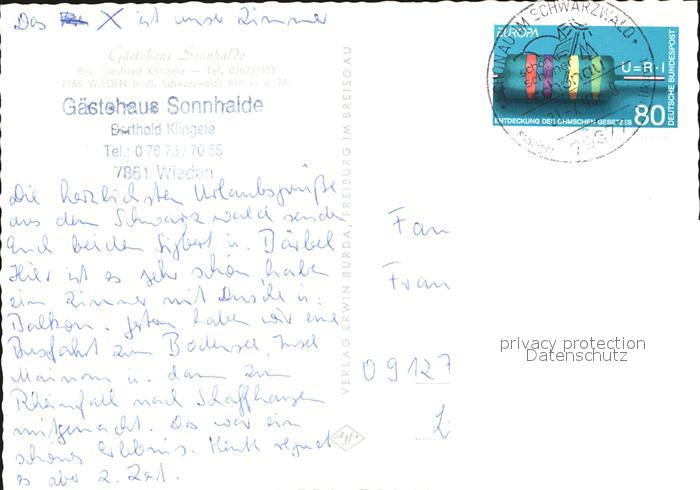 Das X ist unser Zimmer
Gästehaus Sonnhalde
Bes. Siegfried Klingele — Tel. 07673/703
7869 WIEDEN (südl. Schwarzwald) 875 m ü. M.
Gästehaus Sonnhalde
Berthold Klingele
Tel.: 0 76 73 / 70 55
7861 Wieden
Die herzlichsten Urlaubsgrüße
aus dem Schwarzwald senden
Euch beiden Sigbert u. Bärbel
Hier ist es sehr schön, haben
ein Zimmer mit Dusche u.
Balkon. Gestern haben wir eine
Busfahrt zum Bodensee, Insel
Mainau u. dann zum
Rheinfall nach Schaffhausen
mitgemacht. Das war ein
schönes Erlebnis. Heute regnet
es aber z. Zat.
VERLAG ERWIN BURDA, FREIBURG IM BREISGAU
SCHÖNAU IM SCHWARZWALD
79677
EUROPA
U=R·I
ENTDECKUNG DES OHMSCHEN GESETZES
80
DEUTSCHE BUNDESPOST
Fam
Fran
09127
privacy protection
Datenschutz